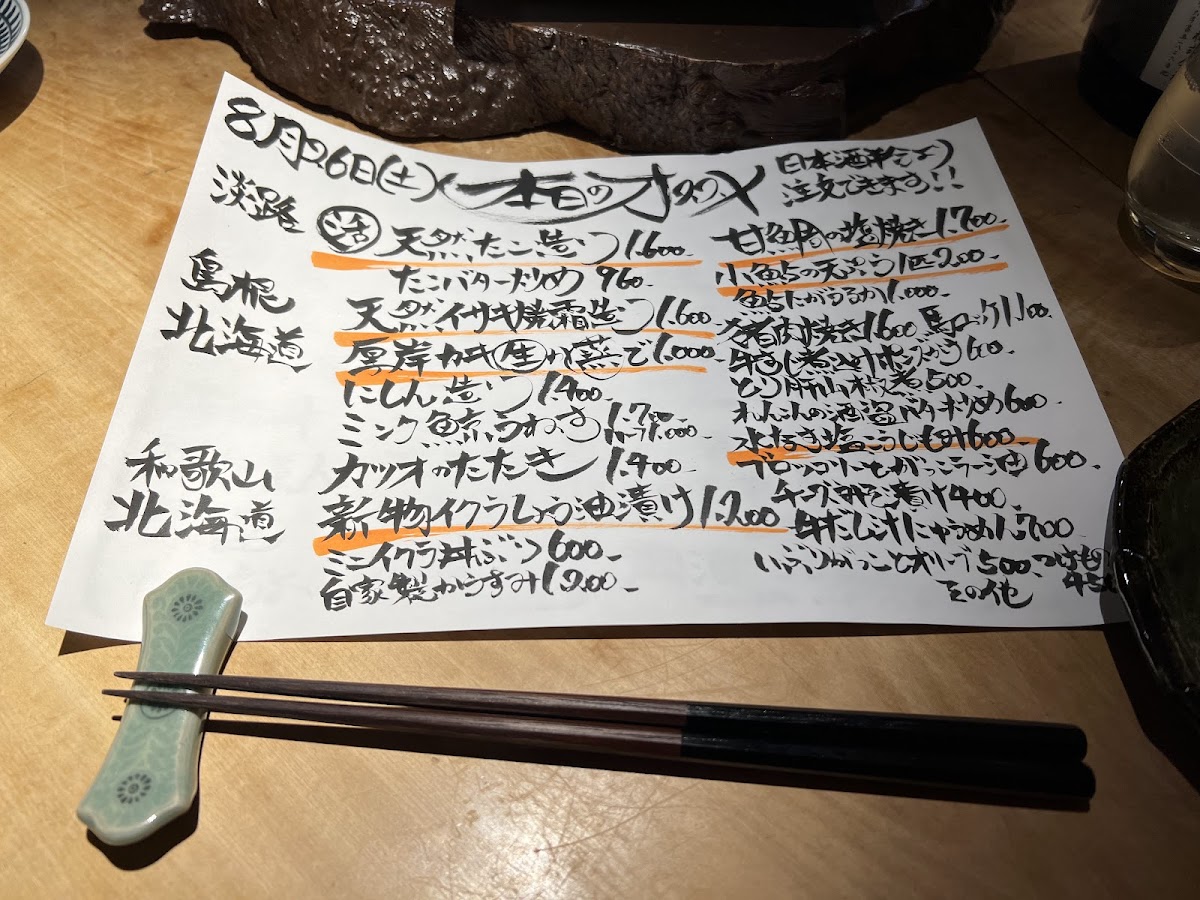 8月26日(土) 本日のオススメ
日本酒半合(グラス)
注文できます!!
淡路 ㊊ 天然たこ造り 1.600-
たこバター炒め 960-
島根 天然イサキ焼霜造り 1.600-
北海道 厚岸カキ 生か蒸で 1.000-
にしん造り 1.400-
ミンク鯨うねす 1.700- ハーフ1.000-
和歌山 カツオのたたき 1.400-
北海道 新物イクラしょう油漬け 1.200
ミニイクラ丼ぶり 600-
自家製からすみ 1.200-
甘鯛の塩焼き 1.700-
小鮎の天ぷら 1匹 200-
鮎にがうるか 1.000-
猪肉焼き 1600 馬ユッケ 1.100-
牛すじ煮込み ポン 600-
とり肝山椒煮 500-
れんこんの バター炒め 600-
水なす塩こうじもみ 600-
ブロッコリーにんにくラー油 600-
チーズみそ漬け 400-
牛だしにゅうめん 1.700
いぶりがっことオリーブ 500-
つけもの
その他